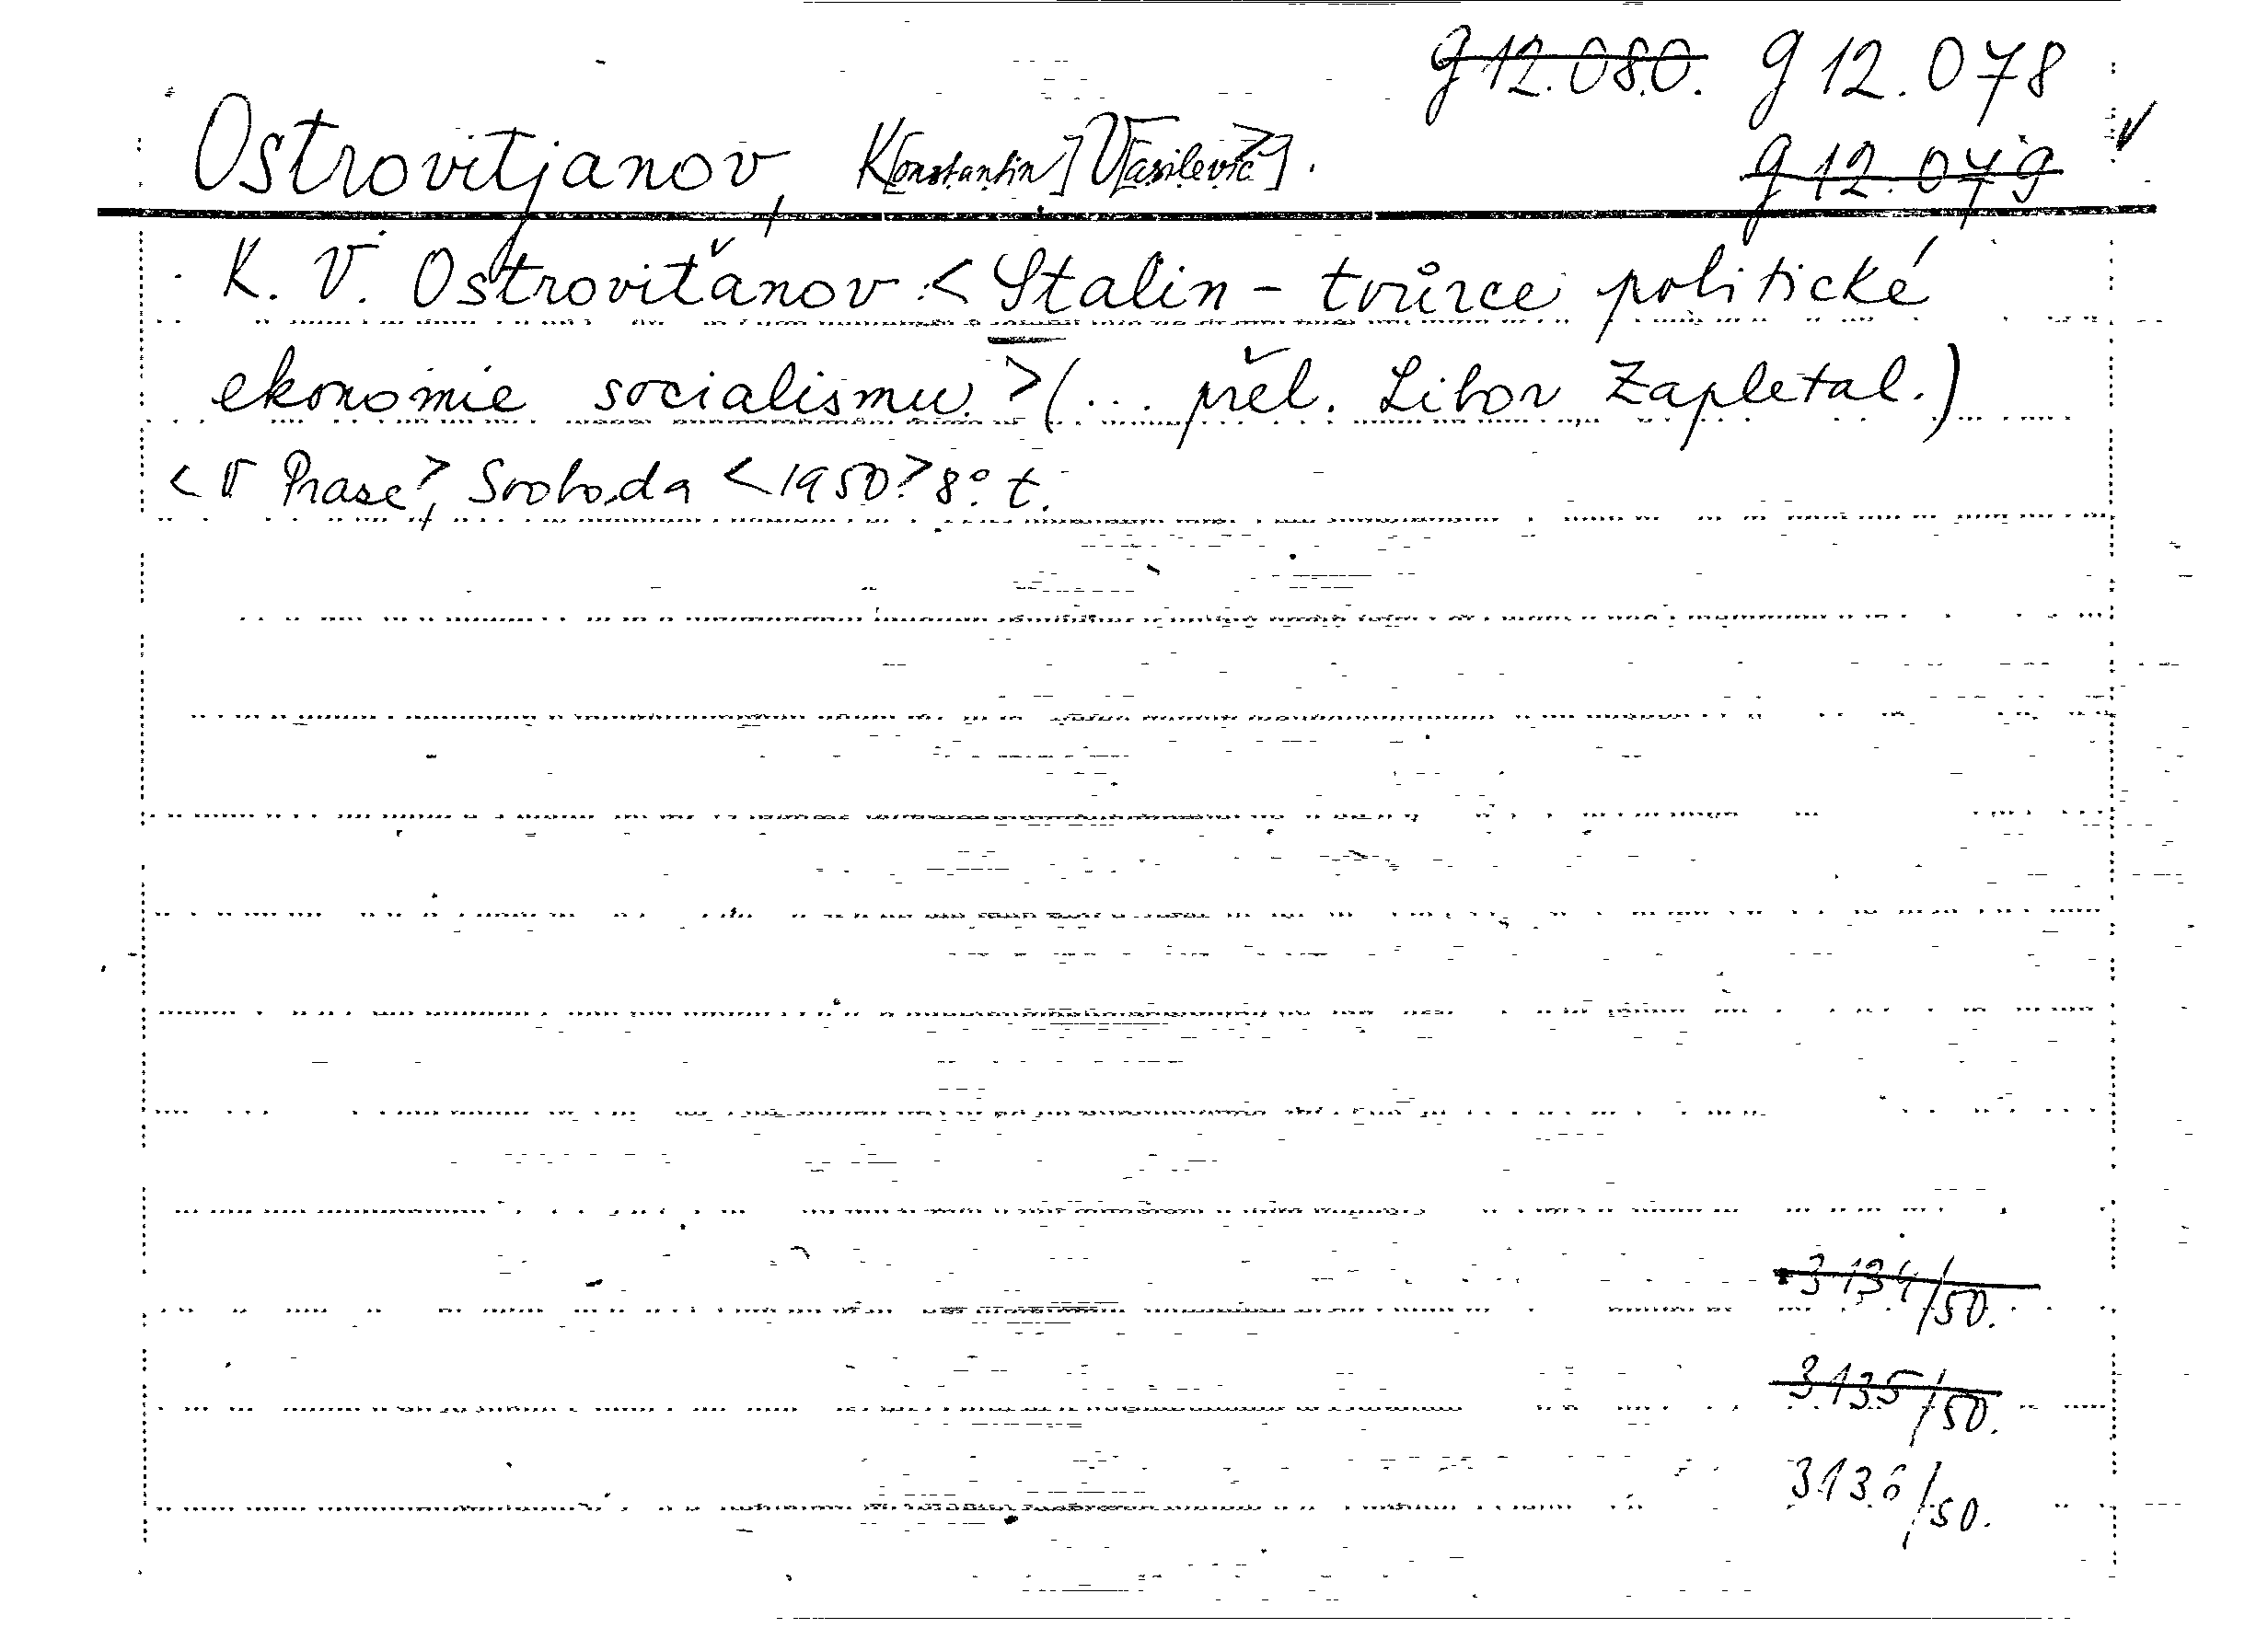 g 12.080. g 12.078
Ostrovitjanov, K[onstantin] V[asilevič].
g 12.079
K. V. Ostroviťanov < Stalin - tvůrce politické
ekonomie socialismu. > (... přel. Libor Zapletal.)
< V Praze >, Svoboda < 1950 > 8° t.
3134/50.
3135/50.
3136/50.